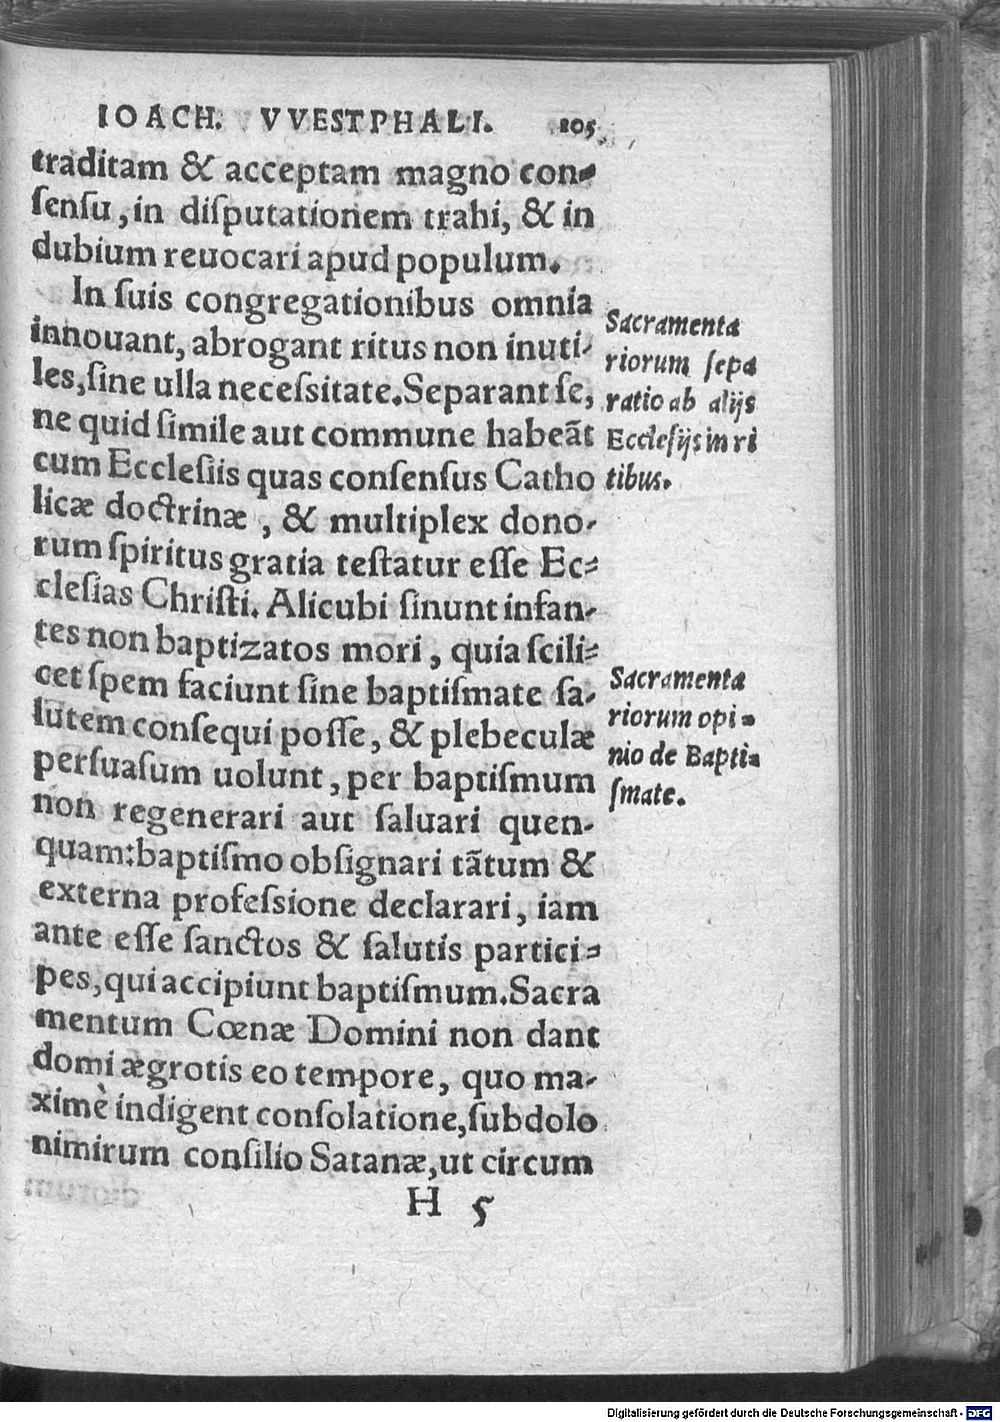 IOACH. VVESTPHALI. 105
traditam & acceptam magno con-
ſenſu, in diſputationem trahi, & in
dubium reuocari apud populum.
In ſuis congregationibus omnia
innouant, abrogant ritus non inuti-
les, ſine ulla neceſsitate. Separant ſe,
ne quid ſimile aut commune habeãt
cum Eccleſiis quas conſenſus Catho
licæ doctrinæ, & multiplex dono-
rum ſpiritus gratia teſtatur eſſe Ec-
cleſias Chriſti. Alicubi ſinunt infan-
tes non baptizatos mori, quia ſcili-
cet ſpem faciunt ſine baptiſmate ſa-
lutem conſequi poſſe, & plebeculæ
perſuaſum uolunt, per baptiſmum
non regenerari aut ſaluari quen-
quam: baptiſmo obſignari tãtum &
externa profeſsione declarari, iam
ante eſſe ſanctos & ſalutis partici-
pes, qui accipiunt baptiſmum. Sacra
mentum Cœnæ Domini non dant
domi ægrotis eo tempore, quo ma-
ximè indigent conſolatione, ſubdolo
nimirum conſilio Satanæ, ut circum
H 5
Sacramenta
riorum ſepa
ratio ab alijs
Eccleſijs in ri
tibus.
Sacramenta
riorum opi-
nio de Bapti-
ſmate.
Digitalisierung gefördert durch die Deutsche Forschungsgemeinschaft - DFG